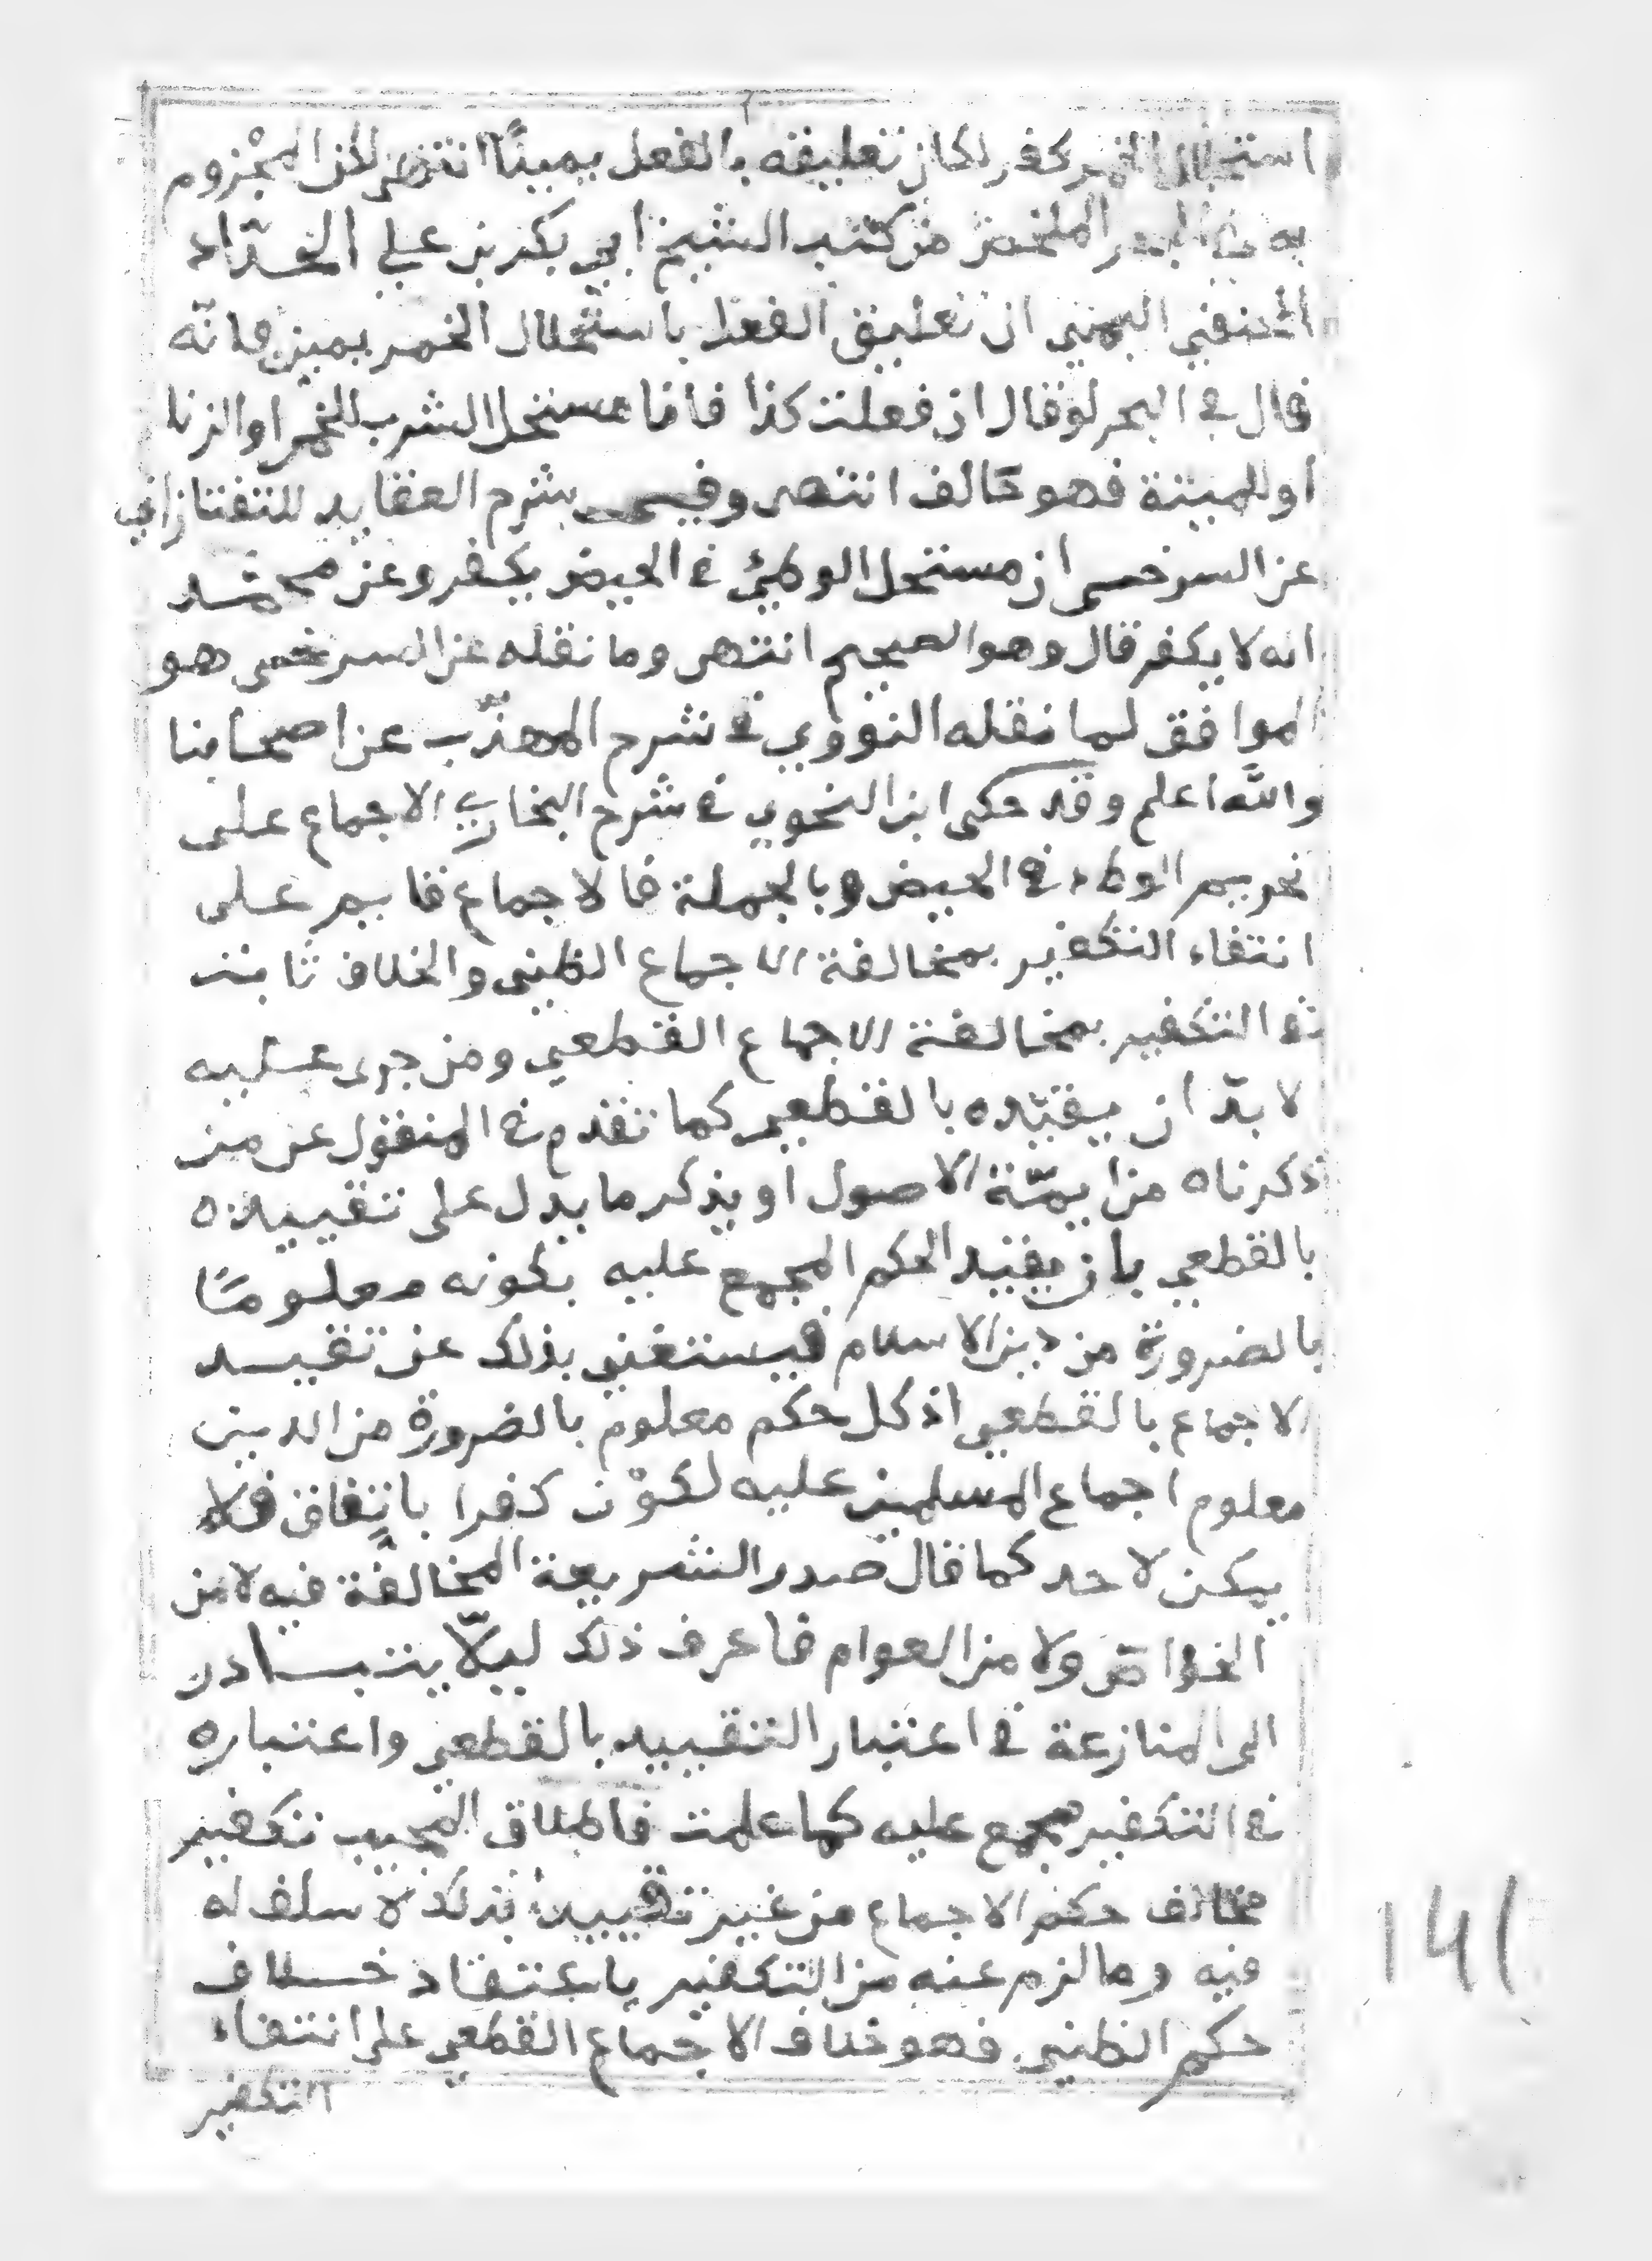 استحلال الخمر كفر لكان تعليقه بالفعل يمينًا انتهى لكن المجْزوم
به في البحر الملخص من كتب الشيخ ابي بكر بن علي الحدّاد
الحنفي اليمني ان تعليق الفعل باستحلال الخمر يمين فانّه
قال في البحر لو قال ان فعلت كذا فانا مستحل لشرب للخمر او الزنا
او للميتة فهو حالف انتهى وفي شرح العقايد للتفتازاني
عن السرخسي ان مستحل الوطئ في الحيض يكفر وعن محمّد
انه لا يكفر قال وهو الصحيح انتهى وما نقله عن السرخسي هو
الموافق لما نقله النووي في شرح المهذّب عن اصحابنا
والله اعلم وقد حكى ابن النحوي في شرح البخاري الاجماع على
تحريم الوطء في الحيض وبالجملة فالاجماع قايم على
انتفاء التكفير بمخالفة الاجماع الظني والخلاف ثابت
في التكفير بمخالفة الاجماع القطعي ومن جرى عليه
لا بدّ ان يقيّده بالقطعي كما تقدم في المنقول عن من
ذكرناه من ايمّة الاصول او يذكر ما يدل على تقييده
بالقطعي بان يقيد الحكم المجمع عليه بكونه معلومًا
بالضرورة من دين الاسلام فيستغني بذلك عن تقييد
الاجماع بالقطعي اذ كل حكم معلوم بالضرورة من الدين
معلوم اجماع المسلمين عليه لكوْن كفرا باتفاق فلا
يمكن لاحد كما قال صدر الشريعة المخالفة فيه لا من
الخواصّ ولا من العوام فاعرف ذلك ليلّا يتبادر
الى المنازعة في اعتبار التقييد بالقطعي واعتباره
في التكفير مجمع عليه كما علمت فاطلاق المجيب تكفير
مخالف حكم الاجماع من غير تقييد بذلك لا سلف له
فيه وما لزم عنه من التكفير باعتقاد خلاف
حكم الظني فهو خلاف الاجماع القطعي على انتفاء
التكفير